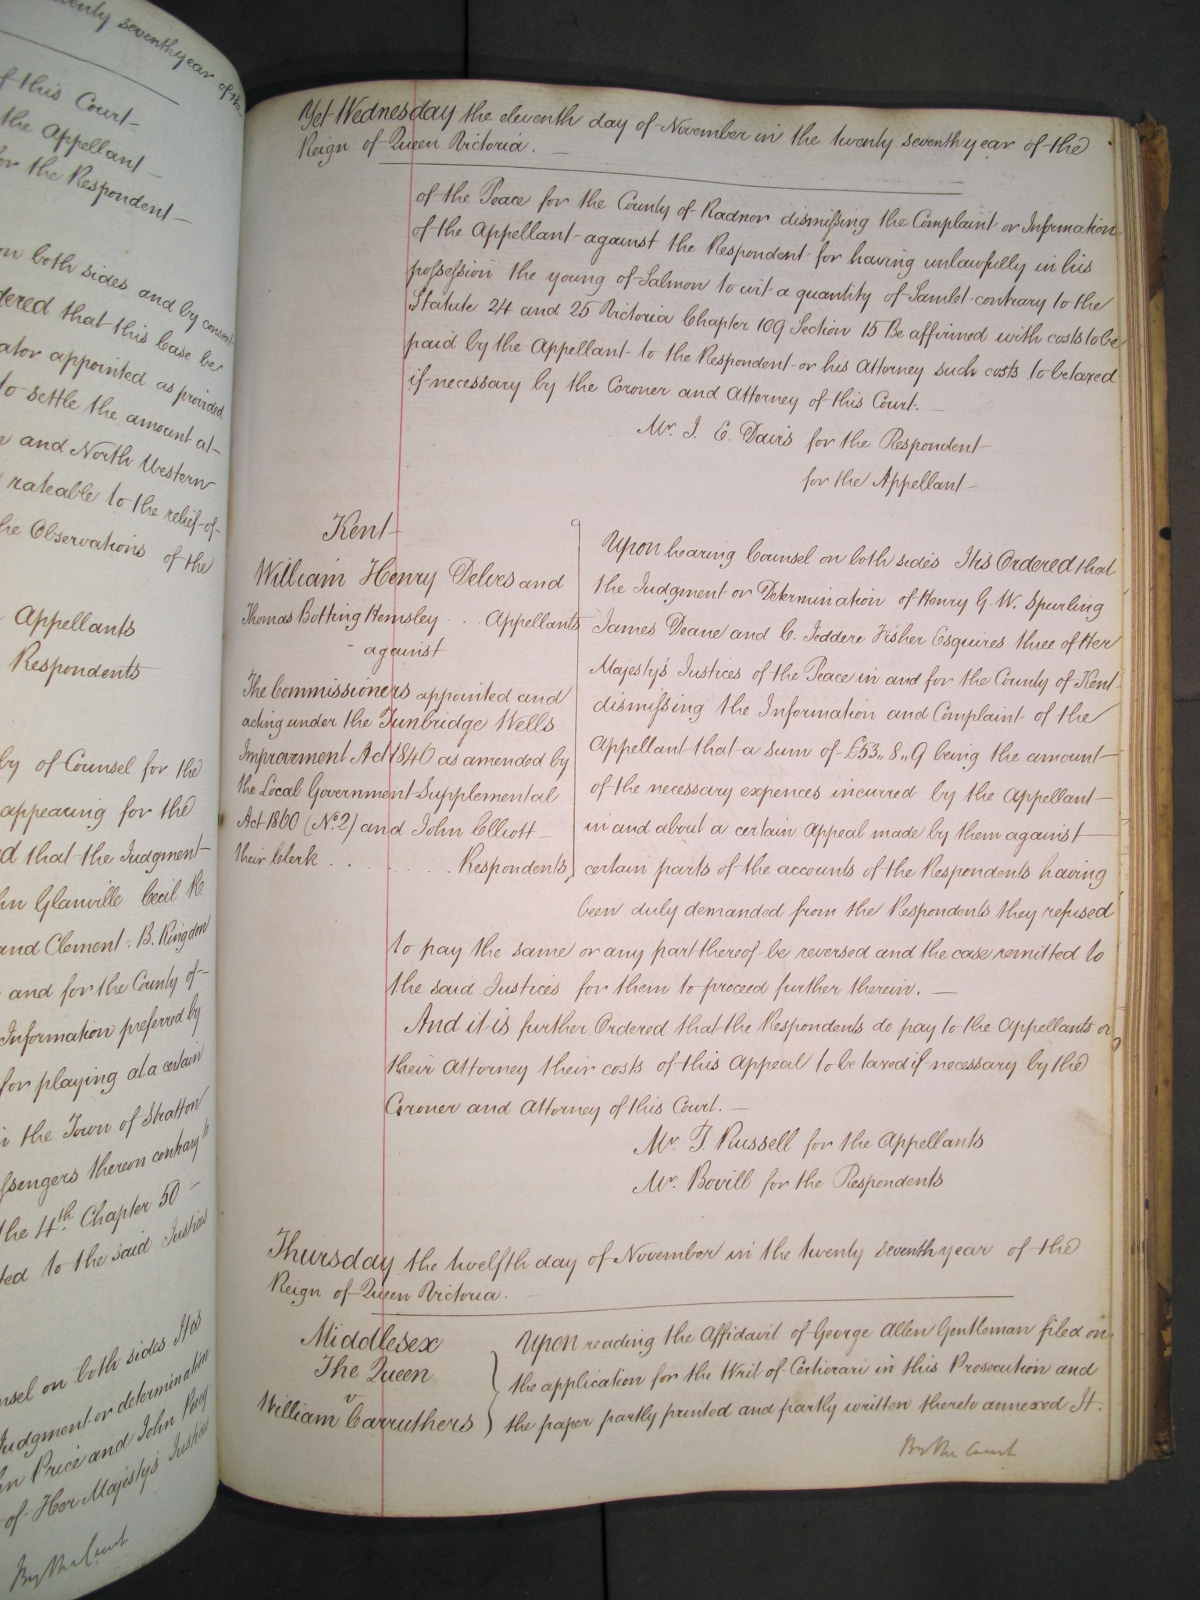 twenty seventh year of the
of this Court
the Appellant
for the Respondent
on both sides and by consent
ordered that this Case be
appointed as provided
to settle the amount at
and North Western
rateable to the relief of
the Observations of the
Appellants
Respondents
by of Counsel for the
appearing for the
that the Judgment
Glanville Cecil R.
and Clement B. Kingdon
and for the County of
Information preferred by
for playing at a certain
in the Town of Stratton
passengers thereon contrary to
the 4th Chapter 50
to the said Justices
Counsel on both sides It is
Judgment or determination
Price and John Price
of Her Majesty's Justices
By the Court
Yet Wednesday the eleventh day of November in the twenty seventh year of the
Reign of Queen Victoria.
of the Peace for the County of Radnor dismissing the Complaint or Information
of the Appellant against the Respondent for having unlawfully in his
possession the young of Salmon to wit a quantity of Samlet contrary to the
Statute 24 and 25 Victoria Chapter 109 Section 15 Be affirmed with costs to be
paid by the Appellant to the Respondent or his Attorney such costs to be taxed
if necessary by the Coroner and Attorney of this Court.
Mr. J. E. Davis for the Respondent
for the Appellant
Kent
William Henry Delves and
Thomas Botting Hemsley . . Appellants
against
The Commissioners appointed and
acting under the Tunbridge Wells
Improvement Act 1846 as amended by
the Local Government Supplemental
Act 1860 (No. 2) and John Elliott
their Clerk . . . . . . Respondents
Upon hearing Counsel on both sides It is Ordered that
the Judgment or Determination of Henry G. W. Spurling
James Deane and C. Teddere Fisher Esquires three of Her
Majesty's Justices of the Peace in and for the County of Kent
dismissing the Information and Complaint of the
Appellant that a sum of £53,, 8,, 9 being the amount
of the necessary expences incurred by the Appellant
in and about a certain Appeal made by them against
certain parts of the accounts of the Respondents having
been duly demanded from the Respondents they refused
to pay the same or any part thereof be reversed and the case remitted to
the said Justices for them to proceed further therein.
And it is further Ordered that the Respondents do pay to the Appellants or
their Attorney their costs of this Appeal to be taxed if necessary by the
Coroner and Attorney of this Court.
Mr. F. Russell for the Appellants
Mr. Bovill for the Respondents
Thursday the twelfth day of November in the twenty seventh year of the
Reign of Queen Victoria.
Middlesex
The Queen
v
William Carruthers
Upon reading the Affidavit of George Allen Gentleman filed on
the application for the Writ of Certiorari in this Prosecution and
the paper partly printed and partly written thereto annexed It.
By the Court